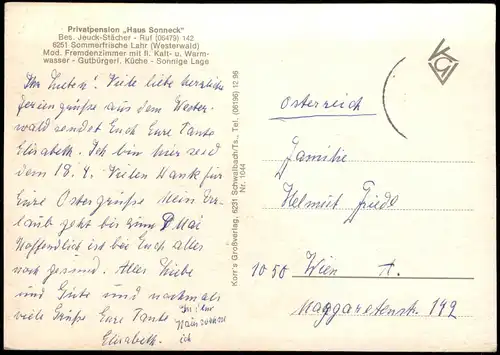 Privatpension „Haus Sonneck"
Bes. Jeuck-Stächer - Ruf (06479) 142
6251 Sommerfrische Lahr (Westerwald)
Mod. Fremdenzimmer mit fl. Kalt- u. Warm-
wasser - Gutbürgerl. Küche - Sonnige Lage
Ihr Lieben! Viele liebe herzliche
Feriengrüße aus dem Wester-
wald sendet Euch Eure Tante
Elisabeth. Ich bin hier seid
dem 18. 4. Vielen Dank für
Eure Ostergrüße Mein Ur-
laub geht bis zum Mai
Hoffendlich ist bei Euch alles
noch gesund. Alles Liebe
und Gute und nochmals
viele Grüße Eure Tante
Elisabeth.
ich
Korr's Großverlag, 6231 Schwalbach/Ts., Tel. (06196) 12 96
Nr. 1644
KGV
Österreich
Familie
Helmut Friedl
1050 Wien A.
Margaretenstr. 142